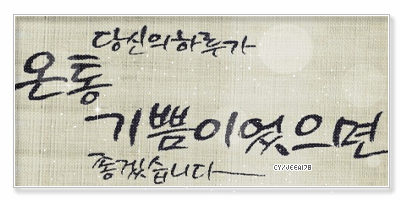 당신의하루가
온통
기쁨이었으면
좋겠습니다
CY/VEEAI7B